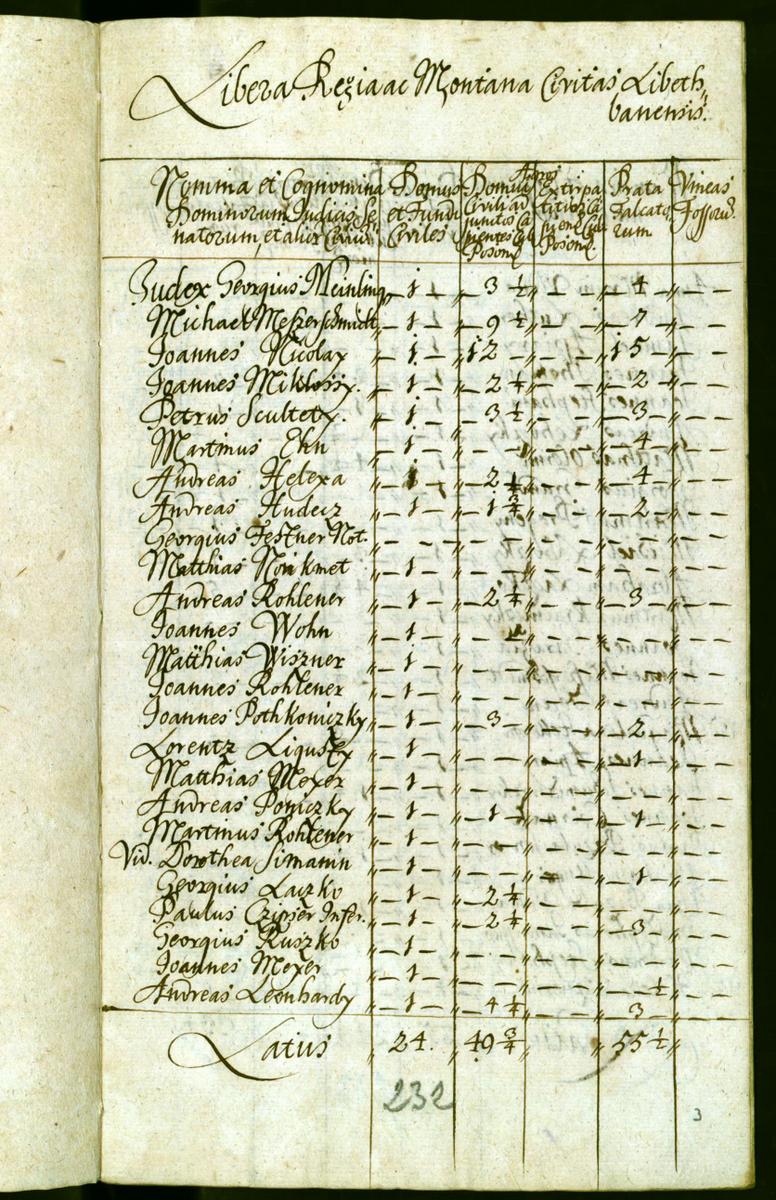 Libera Regia ac Montana Civitas Libeth,,
banensis.
Nomina et Cognomina Dominorum Judicis Se= natorum, et alior Civiu
Domus et Fundi Civiles
Domui Civili ad junctos Ca pientes Posone
Agros Extirpa titios Ca pient Posone
Prata Falcato rum
Vineas Fossoru
Judex Georgius Meinling 1 3 ½ 4
Michael Meßerschmidt 1 9 ½ 7
Joannes Nicolay 1 12 15
Joannes Miklossy. 1 2 ¼ 2
Petrus Scultety. 1 3 ½ 3
Martinus Ehn 1 4
Andreas Helexa 1 2 ½ 4
Andreas Hudecz 1 1 ¾ 2
Georgius Festner Not.
Matthias Noikmet 1
Andreas Rohlener 1 2 ¼ 3
Joannes Wohn 1
Matthias Wiszner 1
Joannes Rohlener 1
Joannes Pothkoniczky 1 3 2
Lorentz Ligusty 1 1
Matthias Meyer 1
Andreas Poniczky 1 1 1
Martinus Rohlener 1
Vid. Dorothea Simanin 1 1
Georgius Laczko 1 2 ¼
Paulus Czipser Infer. 1 2 ¼ 3
Georgius Ruszko 1
Joannes Meyer 1 ½
Andreas Leonhardy 1 4 ¼ 3
Latus 24. 49 ¾ 55 ½
232
3